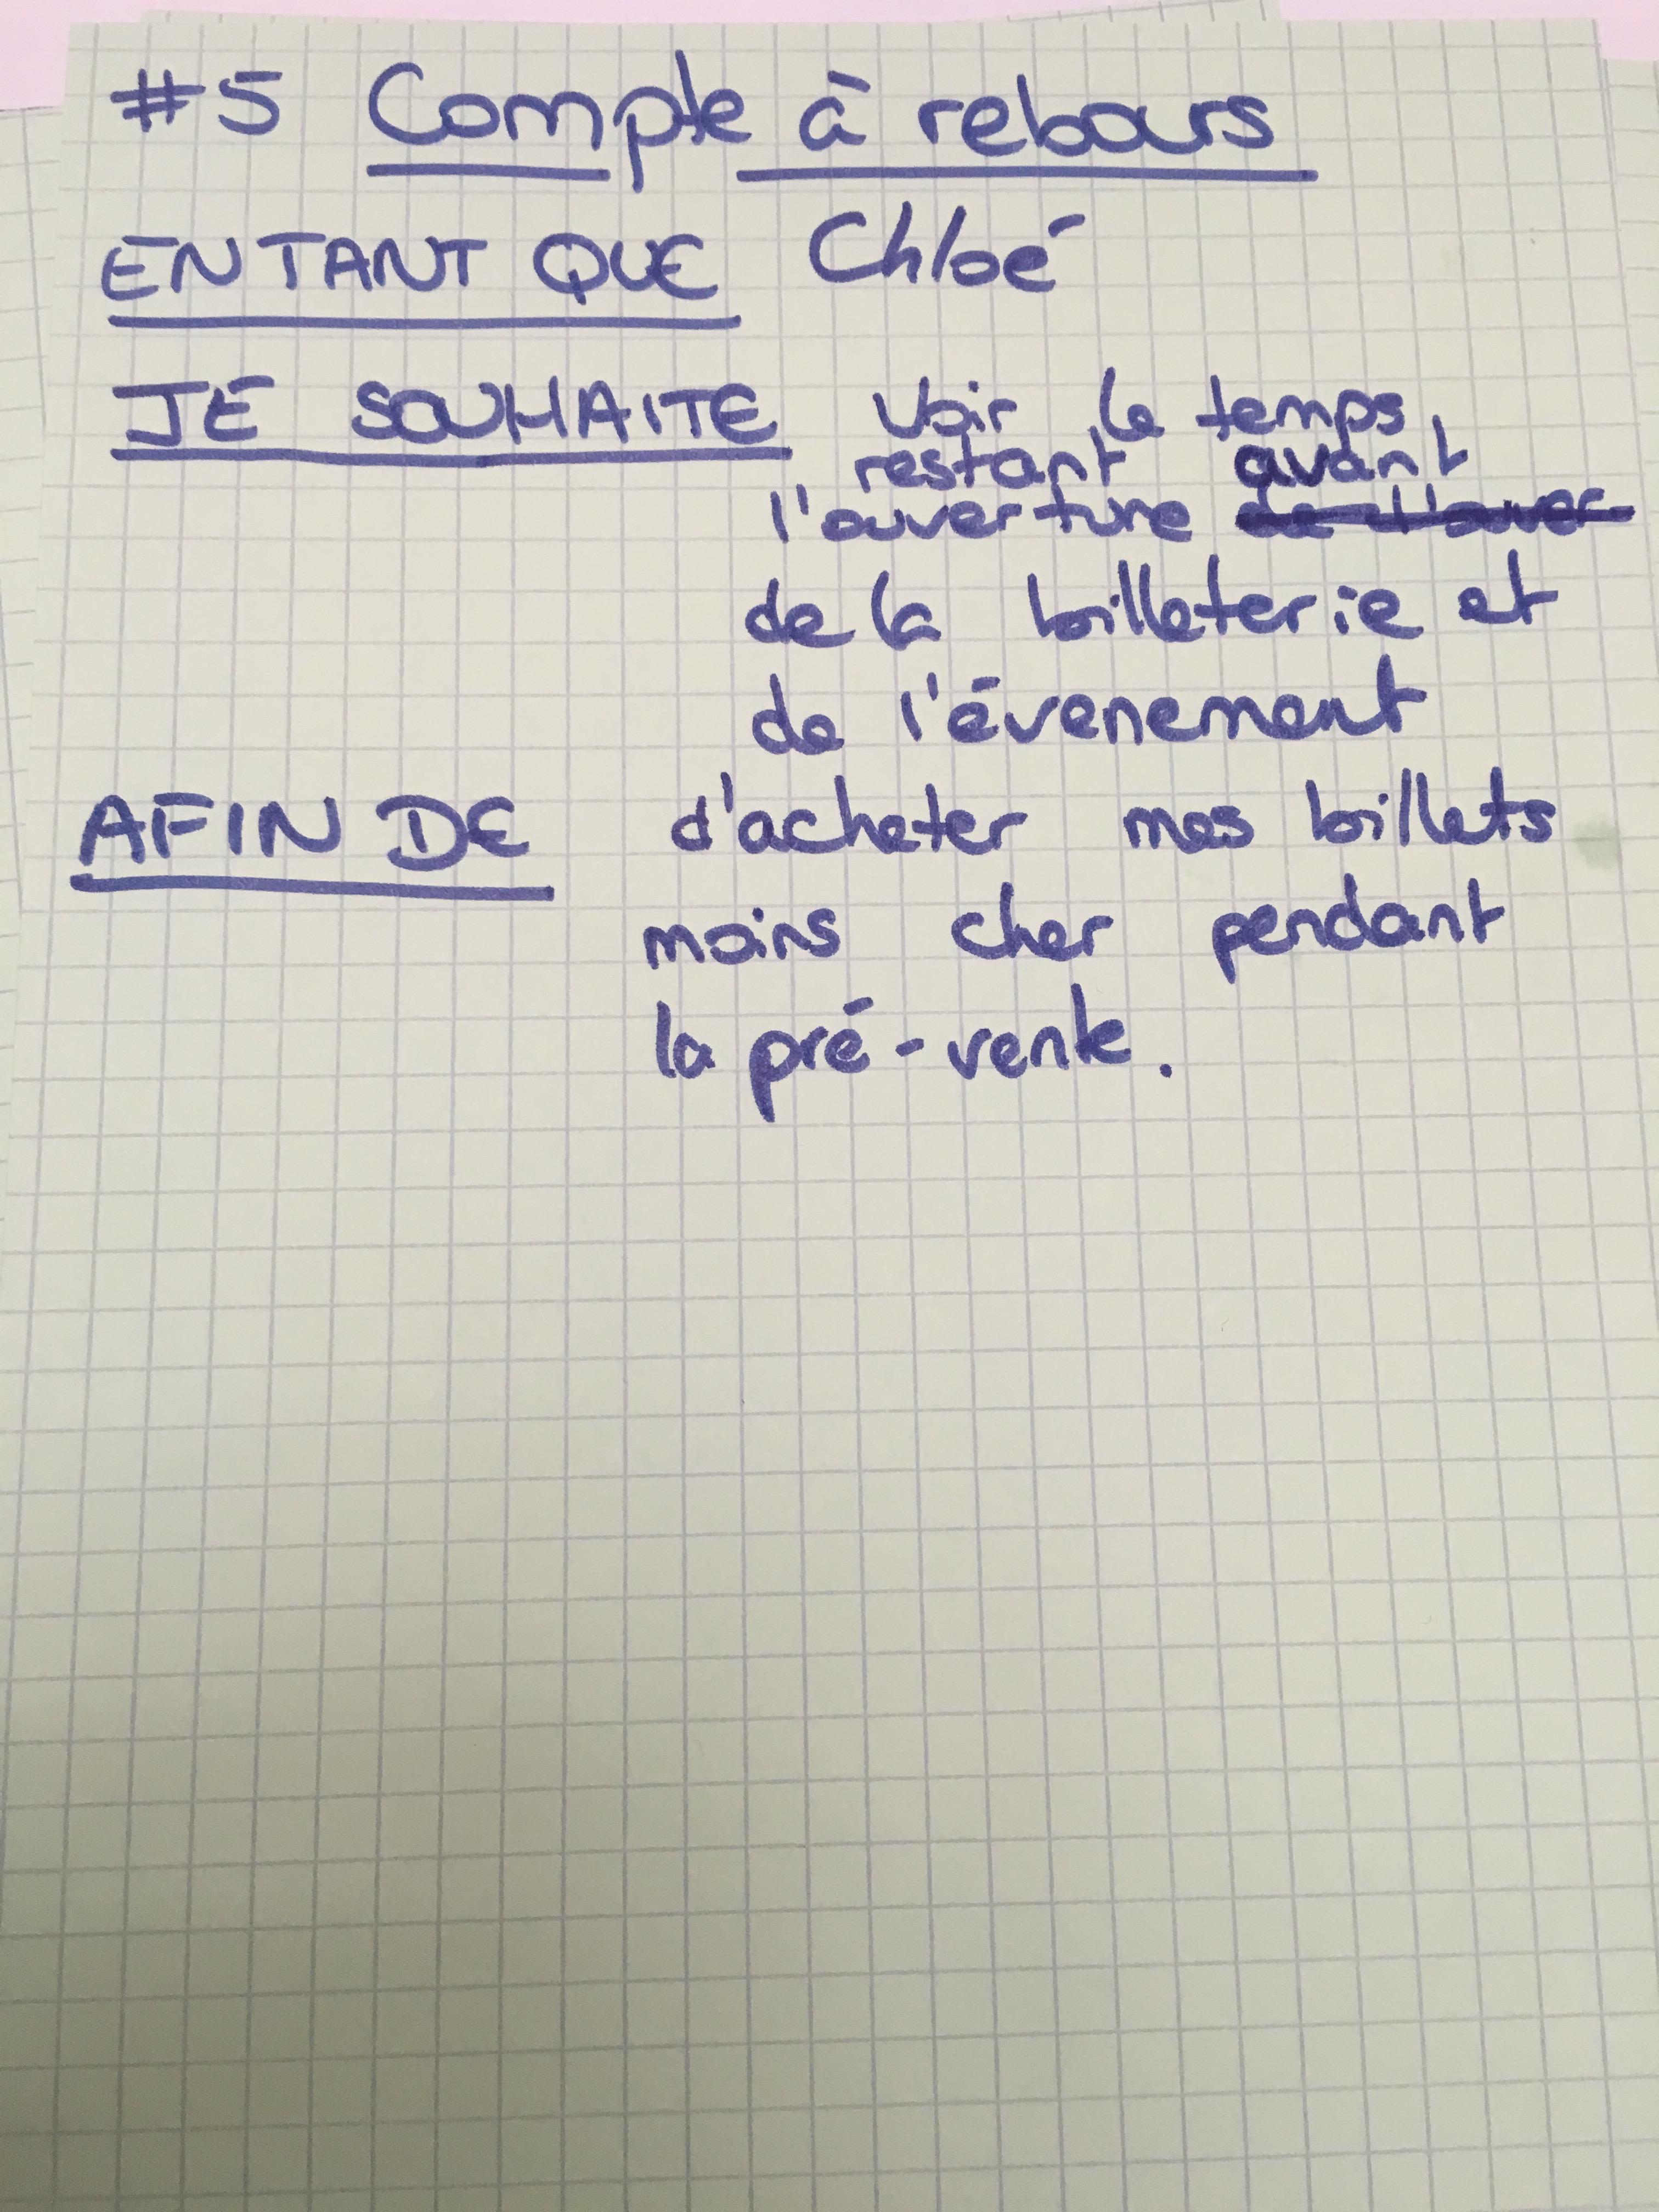 #5 Compte à rebours
EN TANT QUE Chloé
JE SOUHAITE voir le temps
restant avant
l'ouverture de l'ouver
de la billeterie et
de l'évenement
AFIN DE d'acheter mes billets
moins cher pendant
la pré-vente.